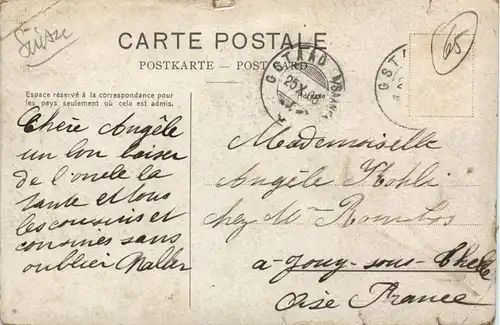 Suisse
CARTE POSTALE
POSTKARTE – POST CARD
65
GSTAAD
25 X 05
GSTA
Espace réservé à la correspondance pour
les pays seulement où cela est admis.
Chère Angèle
un bon baiser
de l'oncle la
tante et tous
les cousins et
cousines sans
oublier Walter
Mademoiselle
Angèle Kohli
chez Mr Rombos
a-Jouy-sous-Thelle
Oise France